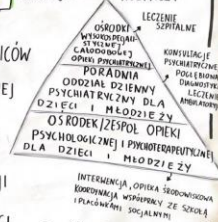 OŚRODKI
WYSOKOSPECJALI-
STYCZNEJ
CAŁODOBOWEJ
OPIEKI PSYCHIATRYCZNEJ
PORADNIA
ODDZIAŁ DZIENNY
PSYCHIATRYCZNY DLA
DZIECI I MŁODZIEŻY
OŚRODEK/ZESPÓŁ OPIEKI
PSYCHOLOGICZNEJ I PSYCHOTERAPEUTYCZNEJ
DLA DZIECI I MŁODZIEŻY
LECZENIE
SZPITALNE
KONSULTACJE
PSYCHIATRYCZNE
POGŁĘBIONA
DIAGNOSTYKA
LECZENIE
AMBULATORY
INTERWENCJA, OPIEKA ŚRODOWISKOWA
KOORDYNACJA WSPÓŁPRACY ZE SZKOŁĄ
I PLACÓWKAMI SOCJALNYMI